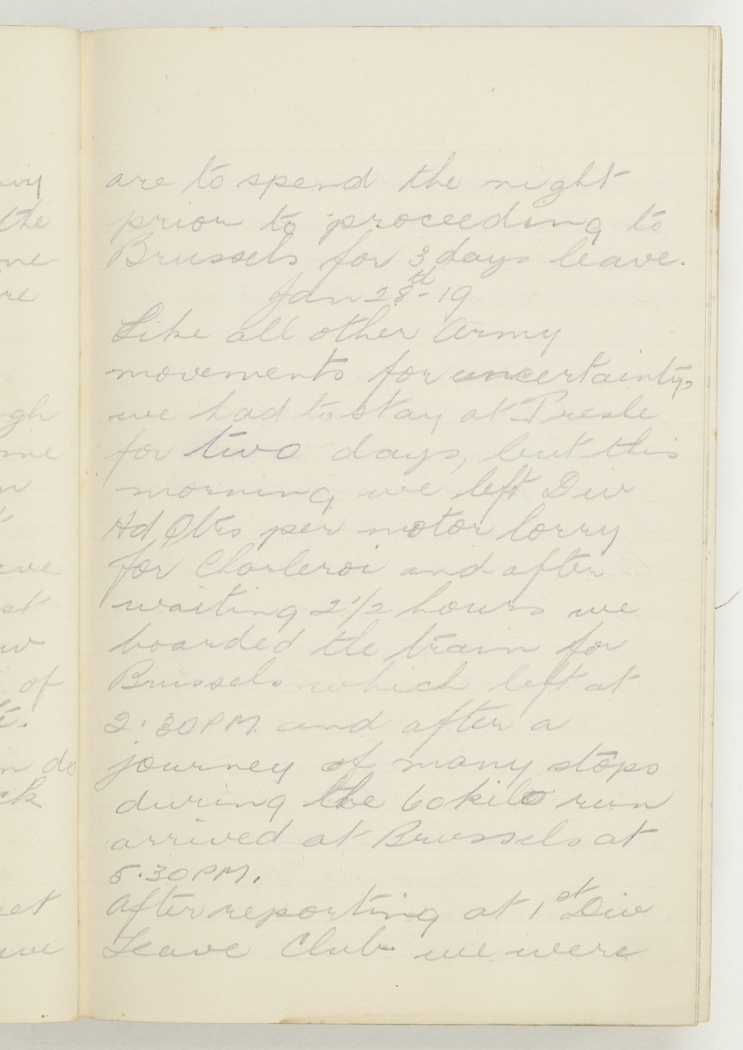 are to spend the night
prior to proceeding to
Brussels for 3 days leave.
Jan 28th - 19
Like all other Army
movements for uncertainty,
we had to stay at Presle
for two days, but this
morning we left Div
Hd Qtrs per motor lorry
for Charleroi and after
waiting 2 1/2 hours we
boarded the train for
Brussels which left at
2.30 PM. and after a
journey of many stops
during the 60 kilo run
arrived at Brussels at
5.30 PM.
After reporting at 1st Div
Leave Club we were